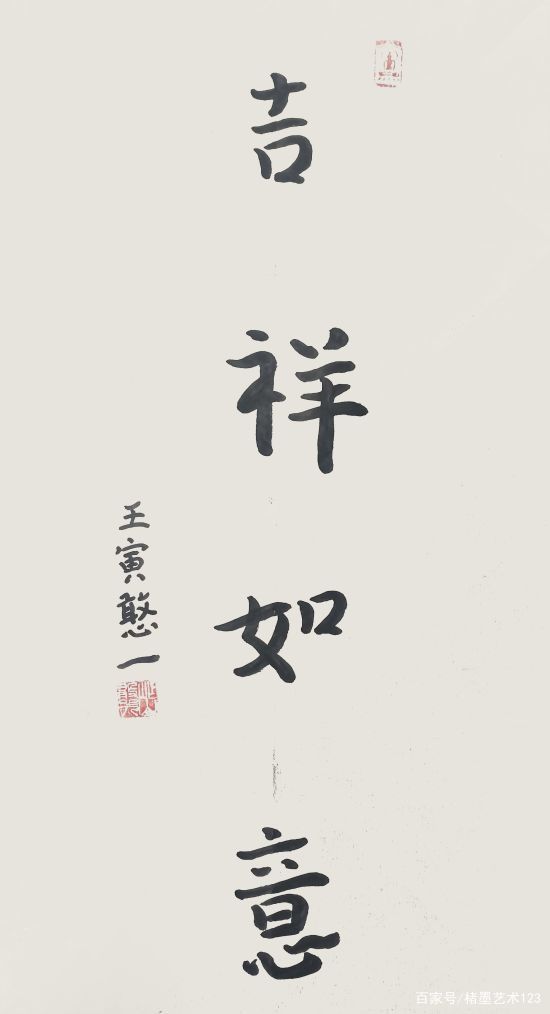 吉祥如意
壬寅憨一
百家号/楮墨艺术123